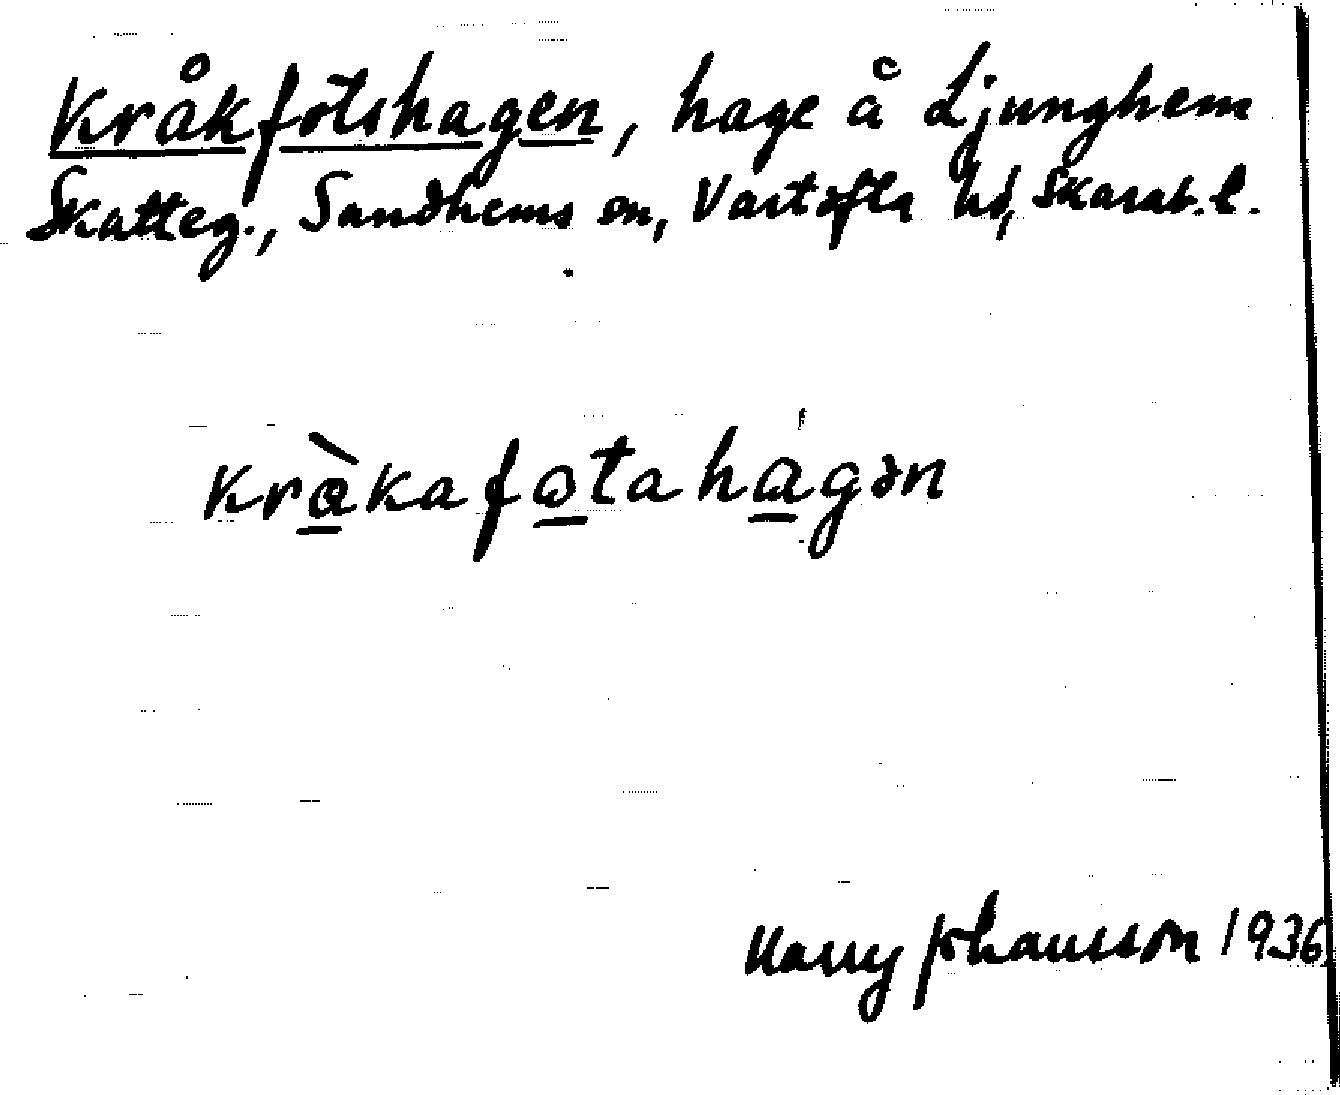 Kråkfotshagen, hage å Ljunghem
Skatteg., Sandhems sn, Vartofta hd, Skarab. l.
kråkafotahagən
Harry Johansson 1936.